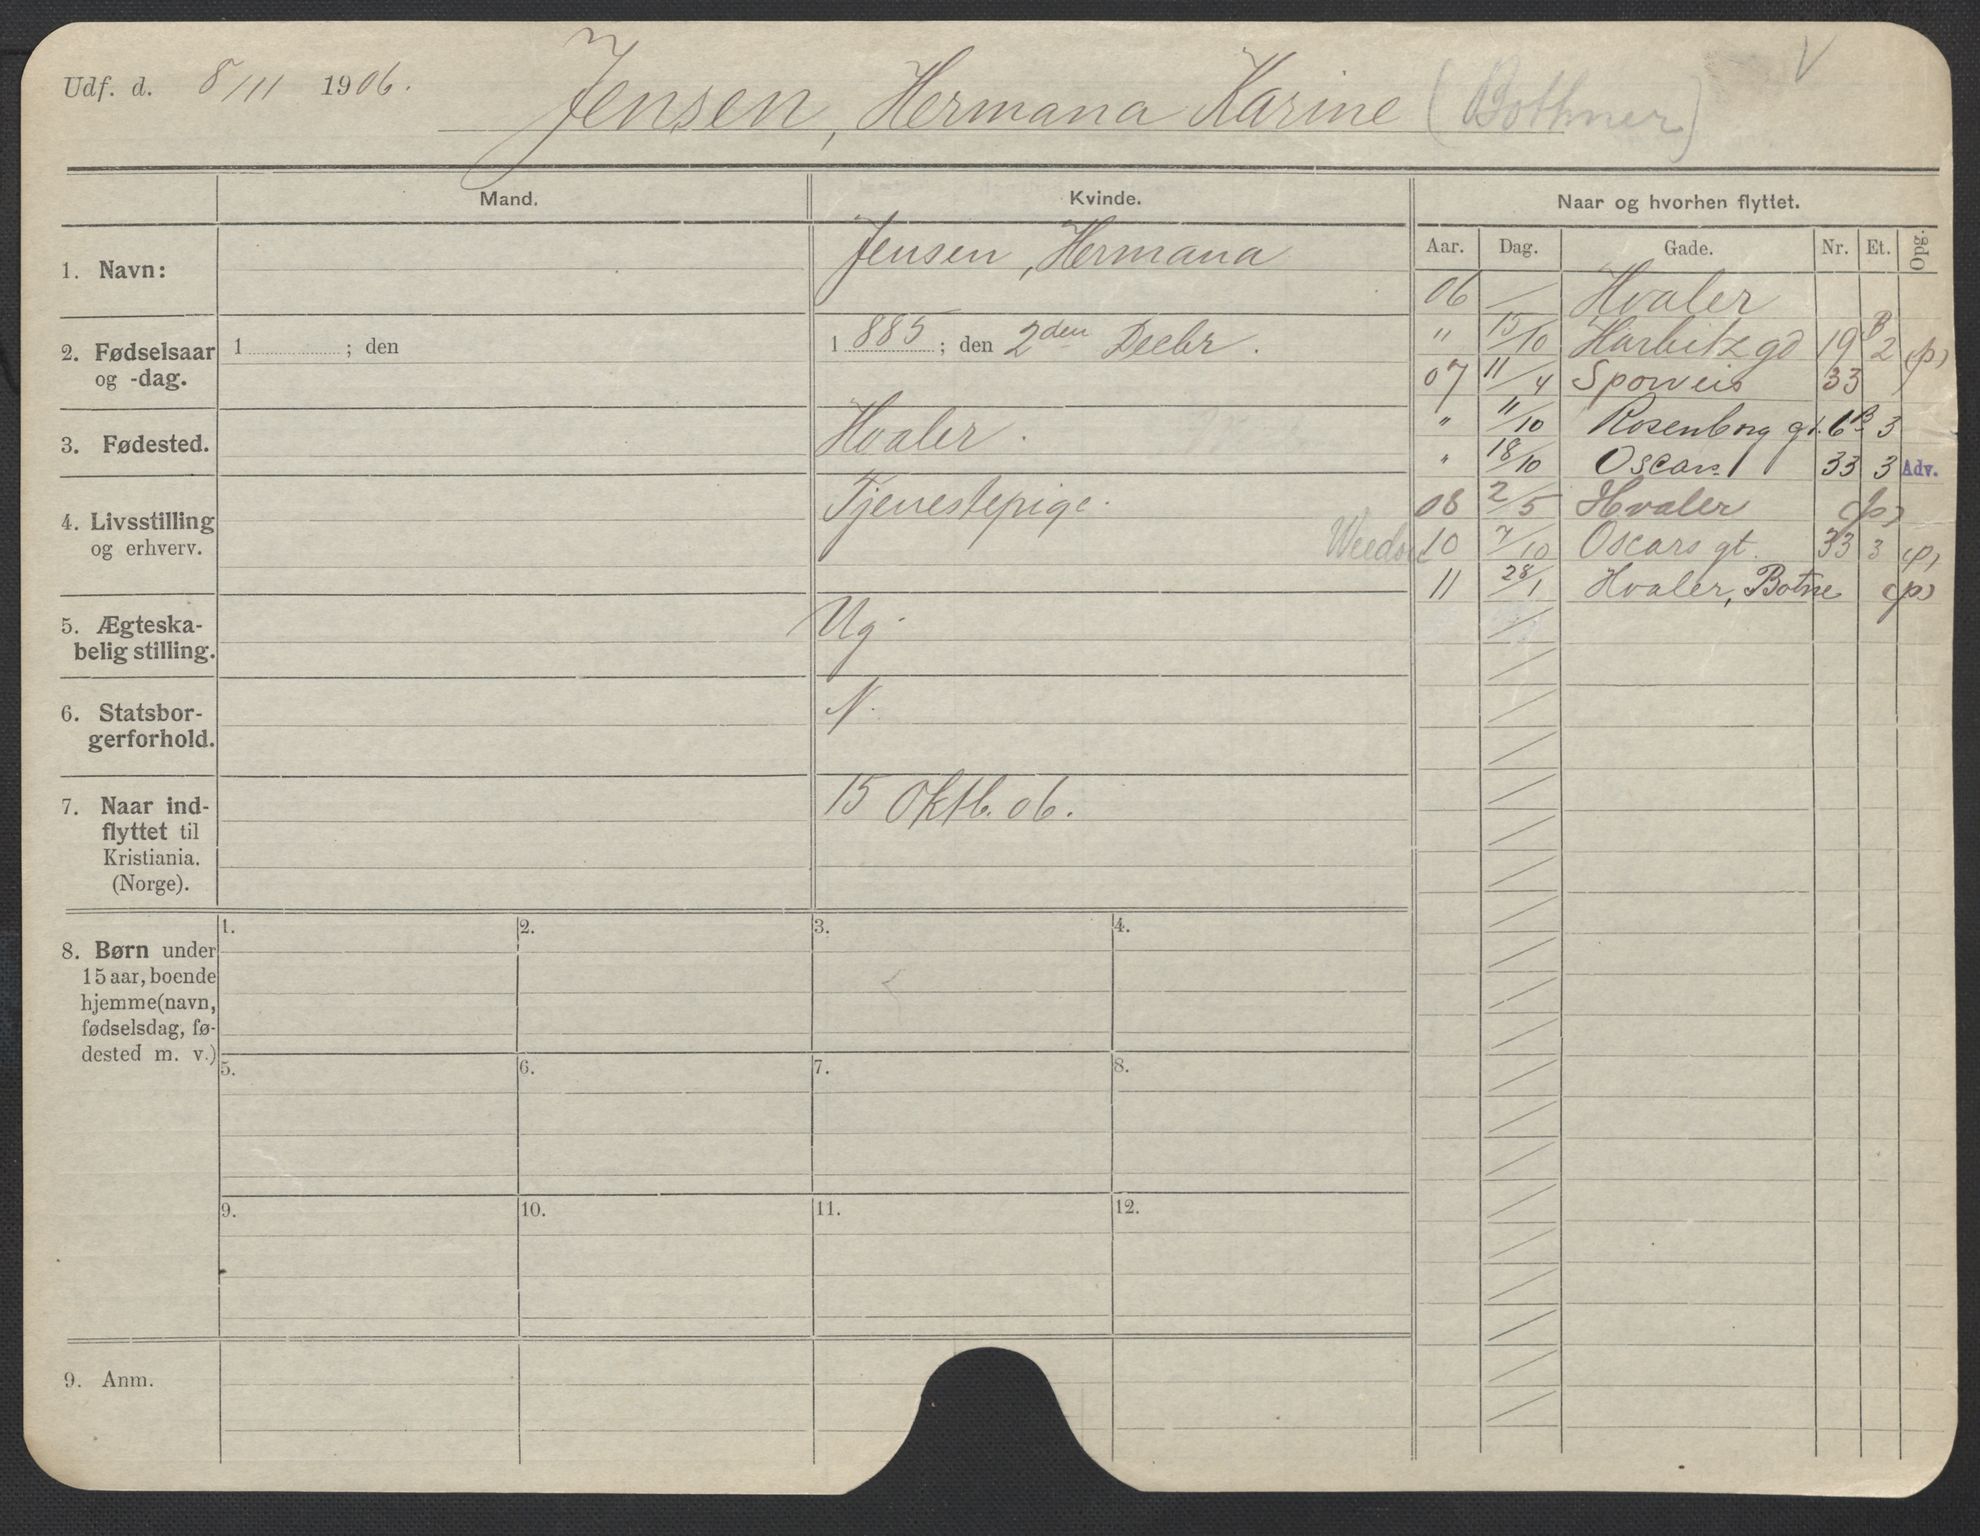 Udf. d. 8/11 1906.
Jensen, Hermana Karine (Bothner)
V
Mand.
Kvinde.
Naar og hvorhen flyttet.
Aar. Dag. Gade. Nr. Et. Opg.
1. Navn:
Jensen, Hermana
2. Fødselsaar
og -dag.
1 ; den
1 885 ; den 2den Decbr.
3. Fødested.
Hvaler.
4. Livsstilling
og erhverv.
Tjenestepige.
5. Ægteska-
belig stilling.
Ug.
6. Statsbor-
gerforhold.
N.
7. Naar ind-
flyttet til
Kristiania.
(Norge).
15 Oktb. 06.
06 / Hvaler
" 15/10 Harbitz gd 19 B 2 (p)
07 11/4 Sporveis 33
" 11/10 Rosenborg gt. 6B 3
" 18/10 Oscars 33 3 Adv.
08 2/5 Hvaler (p)
10 7/10 Oscars gt. 33 3 (p)
11 28/1 Hvaler, Botne (p)
8. Børn under
15 aar, boende
hjemme (navn,
fødselsdag, fø-
dested m. v.)
1. 2. 3. 4.
5. 6. 7. 8.
9. 10. 11. 12.
9. Anm.